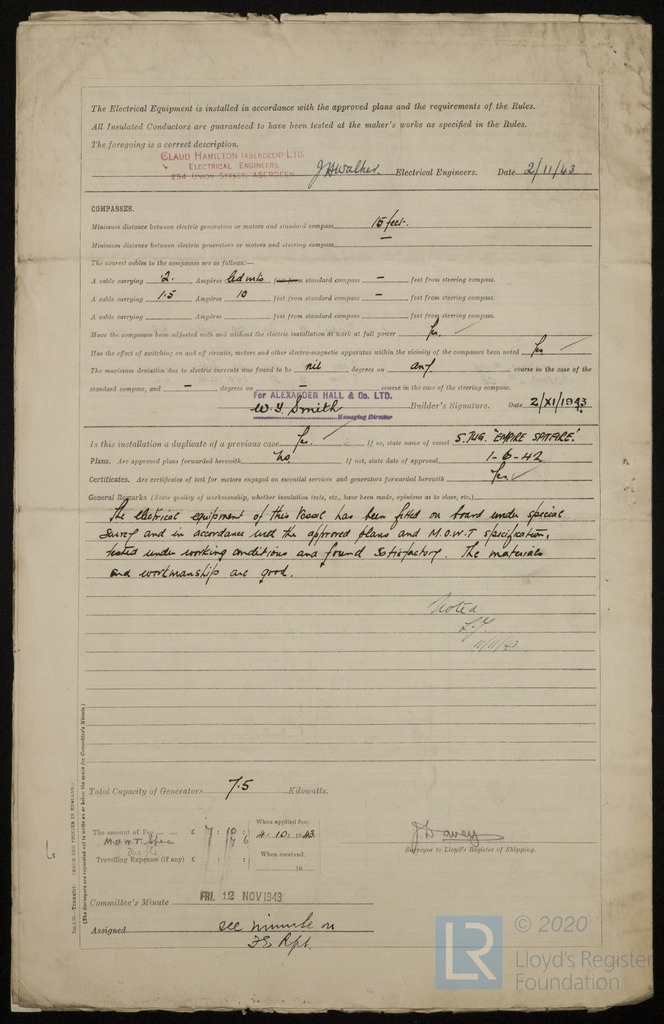 The Electrical Equipment is installed in accordance with the approved plans and the requirements of the Rules.
All Insulated Conductors are guaranteed to have been tested at the maker's works as specified in the Rules.
The foregoing is a correct description.
CLAUD HAMILTON (ABERDEEN) LTD.
ELECTRICAL ENGINEERS
254 UNION STREET, ABERDEEN
J H Walker. Electrical Engineers. Date 2/11/43
COMPASSES.
Minimum distance between electric generators or motors and standard compass 15 feet.
Minimum distance between electric generators or motors and steering compass —
The nearest cables to the compasses are as follows:—
A cable carrying 2. Ampères led into feet from standard compass — feet from steering compass.
A cable carrying 1.5 Ampères 10 feet from standard compass — feet from steering compass.
A cable carrying Ampères feet from standard compass feet from steering compass.
Have the compasses been adjusted with and without the electric installation at work at full power Yes.
Has the effect of switching on and off circuits, motors and other electro-magnetic apparatus within the vicinity of the compasses been noted Yes
The maximum deviation due to electric currents was found to be nil degrees on any course in the case of the
standard compass, and — degrees on — course in the case of the steering compass.
For ALEXANDER HALL & Co. LTD.
W. Y. Smith Builder's Signature. Date 2/XI/1943
Managing Director
Is this installation a duplicate of a previous case Yes. If so, state name of vessel S.TUG. "EMPIRE SPITFIRE."
Plans. Are approved plans forwarded herewith No. If not, state date of approval 1-6-42
Certificates. Are certificates of test for motors engaged on essential services and generators forwarded herewith Yes.
General Remarks (State quality of workmanship, whether insulation tests, etc., have been made, opinions as to class, etc.)
The electrical equipment of this Vessel has been fitted on board under special
survey and in accordance with the approved plans and M.O.W.T specification,
tested under working conditions and found satisfactory. The materials
and workmanship are good.
Noted
11/11/43
Total Capacity of Generators 7.5 Kilowatts.
The amount of Fee ... ... £ 7 : 10 :
M.O.W.T. Spec
17 6
Travelling Expenses (if any) £ : :
When applied for,
4. 10. 1943.
When received,
19
J. Davey
Surveyor to Lloyd's Register of Shipping.
Committee's Minute FRI. 12 NOV 1943
Assigned see minute on
F.E. Rpt.
(The Surveyors are requested not to write on or below the space for Committee's Minute.)
(MADE AND PRINTED IN ENGLAND.)
LR
© 2020
Lloyd's Register
Foundation